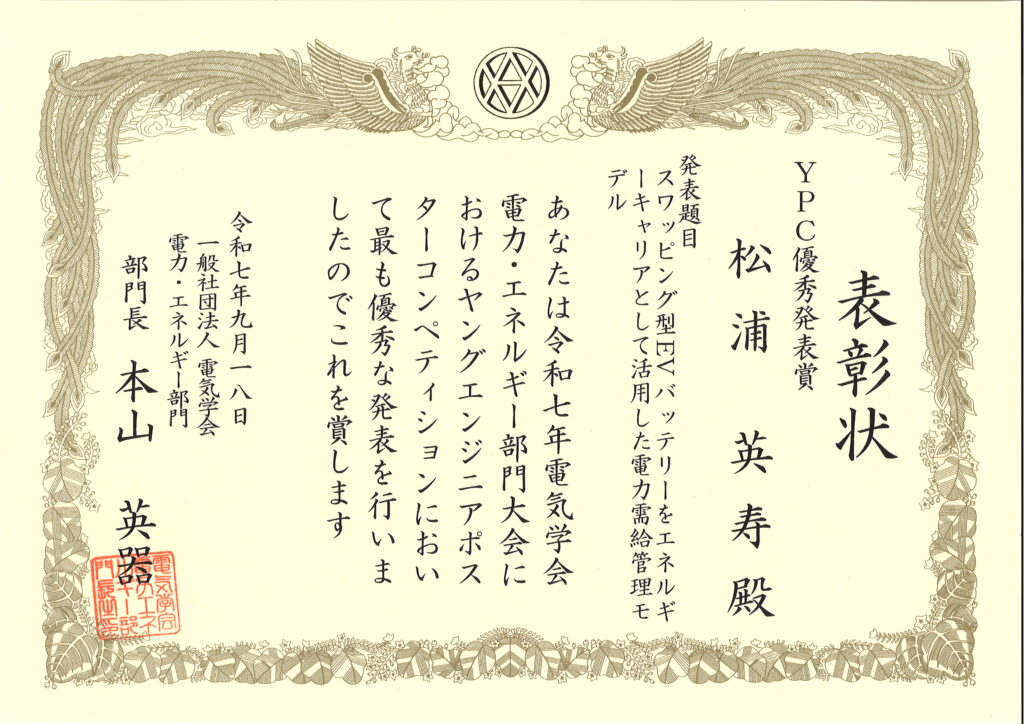 表彰状
YPC優秀発表賞
松浦 英寿 殿
発表題目
スワッピング型EVバッテリーをエネルギ
ーキャリアとして活用した電力需給管理モ
デル
あなたは令和七年電気学会
電力・エネルギー部門大会に
おけるヤングエンジニアポス
ターコンペティションにおい
て最も優秀な発表を行いま
したのでこれを賞します
令和七年九月一八日
一般社団法人 電気学会
電力・エネルギー部門
部門長 本山 英器